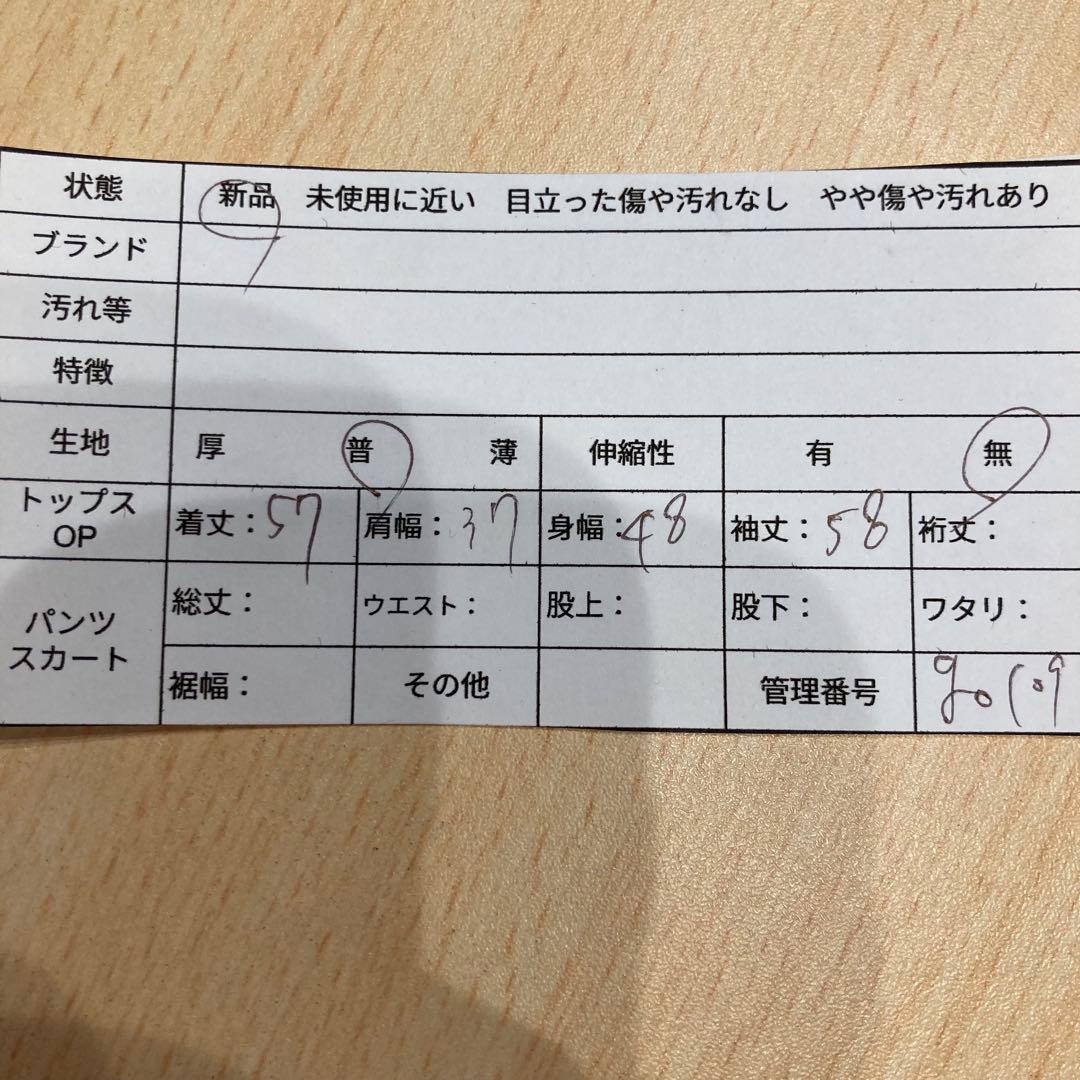 状態 新品 未使用に近い 目立った傷や汚れなし やや傷や汚れあり
ブランド
汚れ等
特徴
生地 厚 普 薄 伸縮性 有 無
トップス OP 着丈：57 肩幅：37 身幅：48 袖丈：58 裄丈：
パンツ スカート 総丈： ウエスト： 股上： 股下： ワタリ：
裾幅： その他 管理番号